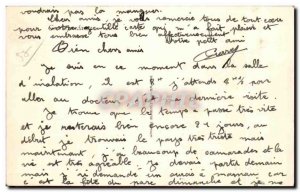 voudrais pas la manquer.
Chers amis je vous remercie tous de tout cœur
pour votre gentille carte qui m'a fait plaisir et
vous embrasse tous bien affectueusement
Votre petit ami
Bien chers amis
Je suis en ce moment dans la salle
d'isolation, il est 8h j'attends 8h ½ pour
aller au docteur, c'est la dernière visite.
Je trouve que le temps a passé très vite
et je resterais bien encore 8 jours, au
début je trouvais le pays très triste mais
maintenant j'ai beaucoup de camarades et la
vie est très agréable. je devais partir demain
mais j'ai demandé un sursis à maman car
c'est la fête du parc dimanche et je ne